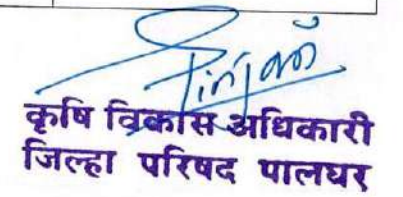 कृषि विकास अधिकारी
जिल्हा परिषद पालघर